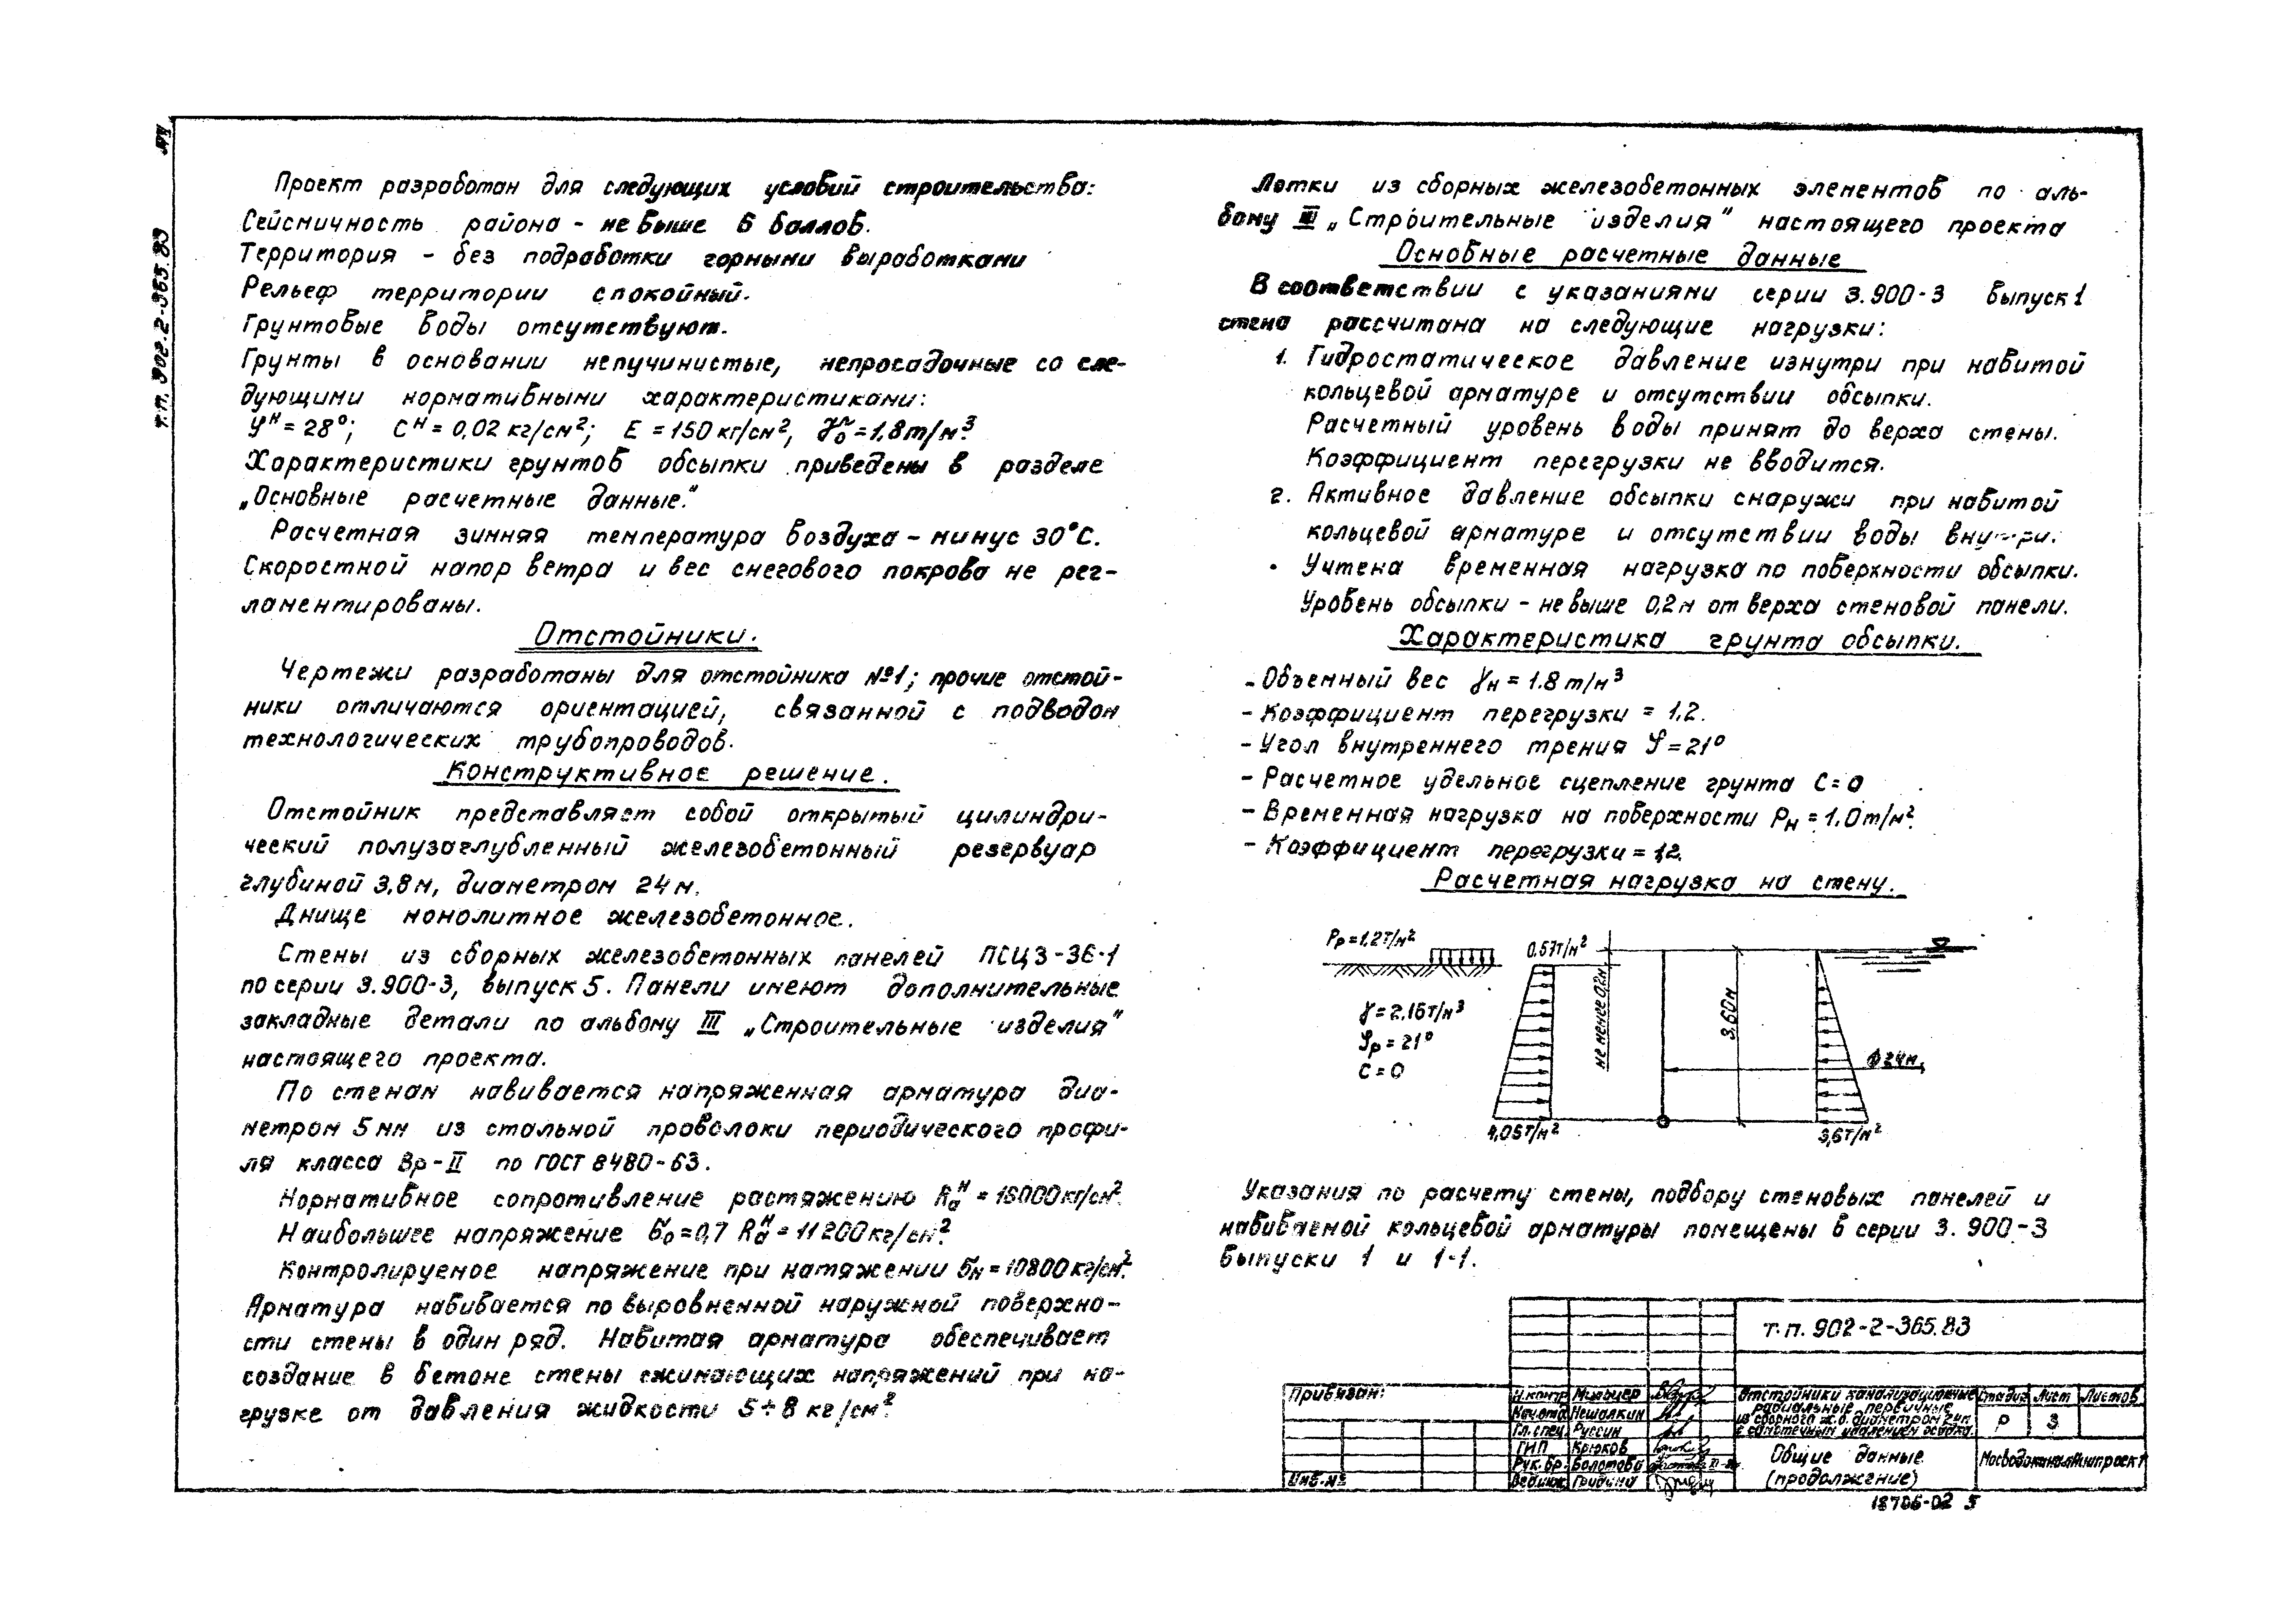 т.п. 902-2-365.83
Проект разработан для следующих условий строительства:
Сейсмичность района - не выше 6 баллов.
Территория - без подработки горными выработками
Рельеф территории спокойный.
Грунтовые воды отсутствуют.
Грунты в основании непучинистые, непросадочные со сле-
дующими нормативными характеристиками:
φᴴ = 28°; Cᴴ = 0,02 кг/см²; E = 150 кг/см², γ₀ = 1,8 т/м³.
Характеристики грунтов обсыпки приведены в разделе
„Основные расчетные данные."
Расчетная зимняя температура воздуха - минус 30°С.
Скоростной напор ветра и вес снегового покрова не рег-
ламентированы.
Отстойники.
Чертежи разработаны для отстойника №1; прочие отстой-
ники отличаются ориентацией, связанной с подводом
технологических трубопроводов.
Конструктивное решение.
Отстойник представляет собой открытый цилиндри-
ческий полузаглубленный железобетонный резервуар
глубиной 3,8м, диаметром 24м.
Днище монолитное железобетонное.
Стены из сборных железобетонных панелей ПСЦ3-36-1
по серии 3.900-3, выпуск 5. Панели имеют дополнительные
закладные детали по альбому III „Строительные изделия"
настоящего проекта.
По стенам навивается напряженная арматура диа-
метром 5мм из стальной проволоки периодического профи-
ля класса Вр-II по ГОСТ 8480-63.
Нормативное сопротивление растяжению Rₐᴴ = 16000 кг/см².
Наибольшее напряжение σ₀ = 0,7 Rₐᴴ = 11200 кг/см².
Контролируемое напряжение при натяжении σн = 10800 кг/см².
Арматура навивается по выровненной наружной поверхно-
сти стены в один ряд. Навитая арматура обеспечивает
создание в бетоне стены сжимающих напряжений при на-
грузке от давления жидкости 5÷8 кг/см².
Лотки из сборных железобетонных элементов по аль-
бому III „Строительные изделия" настоящего проекта
Основные расчетные данные
В соответствии с указаниями серии 3.900-3 выпуск 1
стена рассчитана на следующие нагрузки:
1. Гидростатическое давление изнутри при навитой
кольцевой арматуре и отсутствии обсыпки.
Расчетный уровень воды принят до верха стены.
Коэффициент перегрузки не вводится.
2. Активное давление обсыпки снаружи при навитой
кольцевой арматуре и отсутствии воды внутри.
Учтена временная нагрузка по поверхности обсыпки.
Уровень обсыпки - не выше 0,2м от верха стеновой панели.
Характеристика грунта обсыпки.
- Объемный вес γн = 1.8 т/м³
- Коэффициент перегрузки = 1,2.
- Угол внутреннего трения φ = 21°
- Расчетное удельное сцепление грунта С = 0
- Временная нагрузка на поверхности Рн = 1,0 т/м².
- Коэффициент перегрузки = 1,2.
Расчетная нагрузка на стену.
Рр = 1,2т/м²
0.57т/м²
γ = 2,16т/м³
φр = 21°
С = 0
не менее 0,2м
3,60м
Ф 24м,
4,05т/м²
3,6т/м²
Указания по расчету стены, подбору стеновых панелей и
навиваемой кольцевой арматуры помещены в серии 3.900-3
Выпуски 1 и 1-1.
т.п. 902-2-365.83
Привязан:
Инв.№
Н.контр Мильцер
Нач.отд Мешалкин
Гл.спец. Руссин
ГИП Крюков
Рук.бр. Болотова
Вед.инж. Гридина
Отстойники канализационные
радиальные первичные
из сборного ж.б. диаметром 24м
с самотечным удалением осадка.
Стадия Лист Листов
Р 3
Общие данные
(продолжение)
Мосводоканалниипроект
18706-02 5